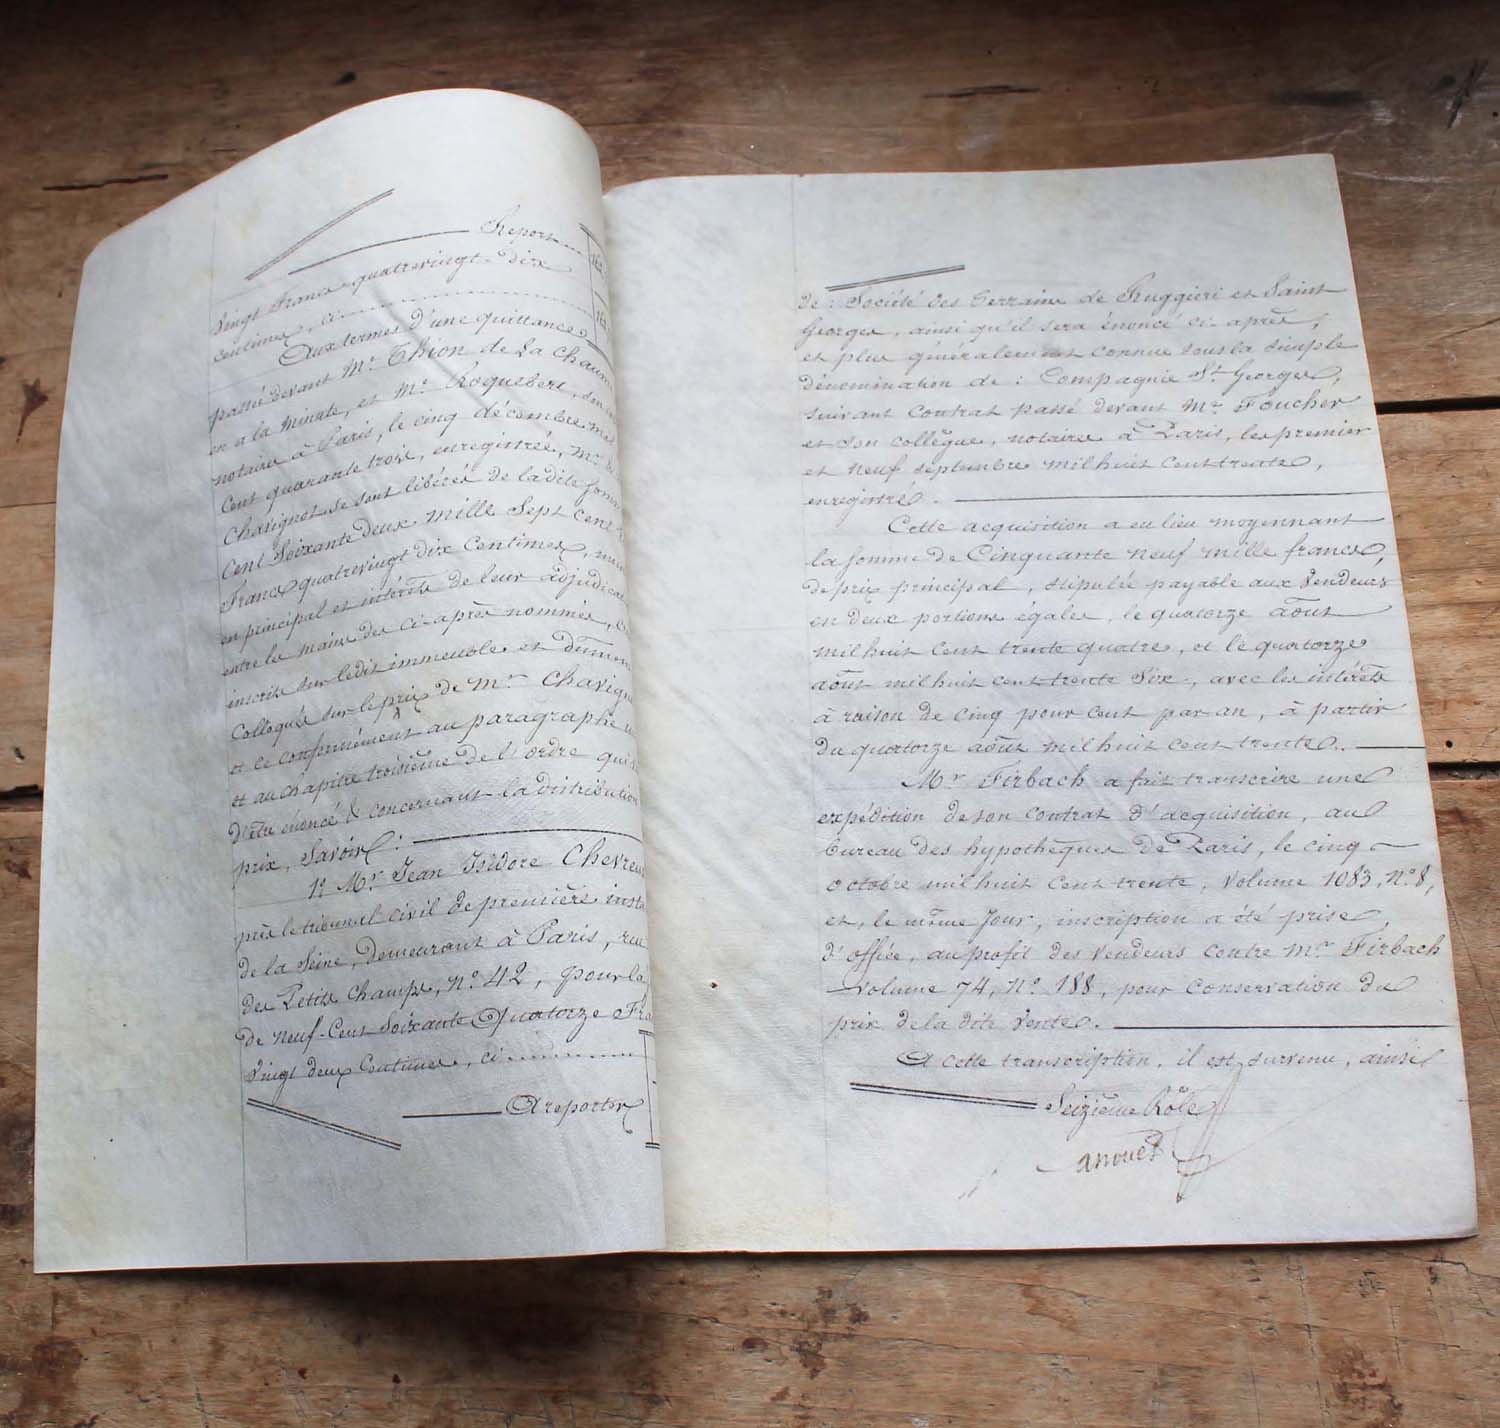 Report
Vingt Francs quatrevingt-dix
centimes, ci
Aux termes d'une quittance
passée devant Mr. Thion de La Chaum
en a la minute, et Mr. Roquebert, son
notaires à Paris, le cinq décembre mil
Cent quarante trois, enregistrée, Mr.
Chavignot se sont libérés de la dite som
Cent Soixante Deux mille Sept Cent
Francs quatrevingt dix Centimes,
en principal et intérêts de leur adjudica
entre les mains des ci-après nommés,
inscrits sur ledit immeuble et dûmen
Colloqués sur le prix de Mr. Chavign
et ce conformément au paragraphe
et au chapitre troisième de l'ordre qui
d'être énoncé & concernant la distribution
prix, Savoir:
1º Mr. Jean Isidore Chevreu
près le tribunal civil de première insta
de la Seine, demeurant à Paris, rue
des Petits Champs, Nº 42, pour la
de neuf-Cent Soixante Quatorze Fra
Vingt deux Centimes, ci
A reporter
de: Société des Terrains de Ruggieri et Saint
Georges, ainsi qu'il sera énoncé ci-après,
et plus généralement connue sous la simple
dénomination de: Compagnie St. Georges,
suivant Contrat passé devant Mr. Foucher
et son collègue, notaires à Paris, les premier
et neuf septembre mil huit cent trente,
enregistré.
Cette acquisition a eu lieu moyennant
la somme de Cinquante neuf mille francs,
de prix principal, stipulée payable aux Vendeurs
en deux portions égales, le quatorze août
mil huit cent trente quatre, et le quatorze
août mil huit cent trente Six, avec les intérêts
à raison de cinq pour cent par an, à partir
du quatorze août mil huit cent trente.
Mr. Firbach a fait transcrire une
expédition de son contrat d'acquisition, au
bureau des hypothèques de Paris, le cinq
octobre mil huit cent trente, Volume 1083, Nº 8,
et, le même jour, inscription a été prise
d'office, au profit des Vendeurs contre Mr. Firbach
Volume 74, Nº 188, pour conservation du
prix de la dite Vente.
A cette transcription, il est survenu, ainsi
Seizième Rôle